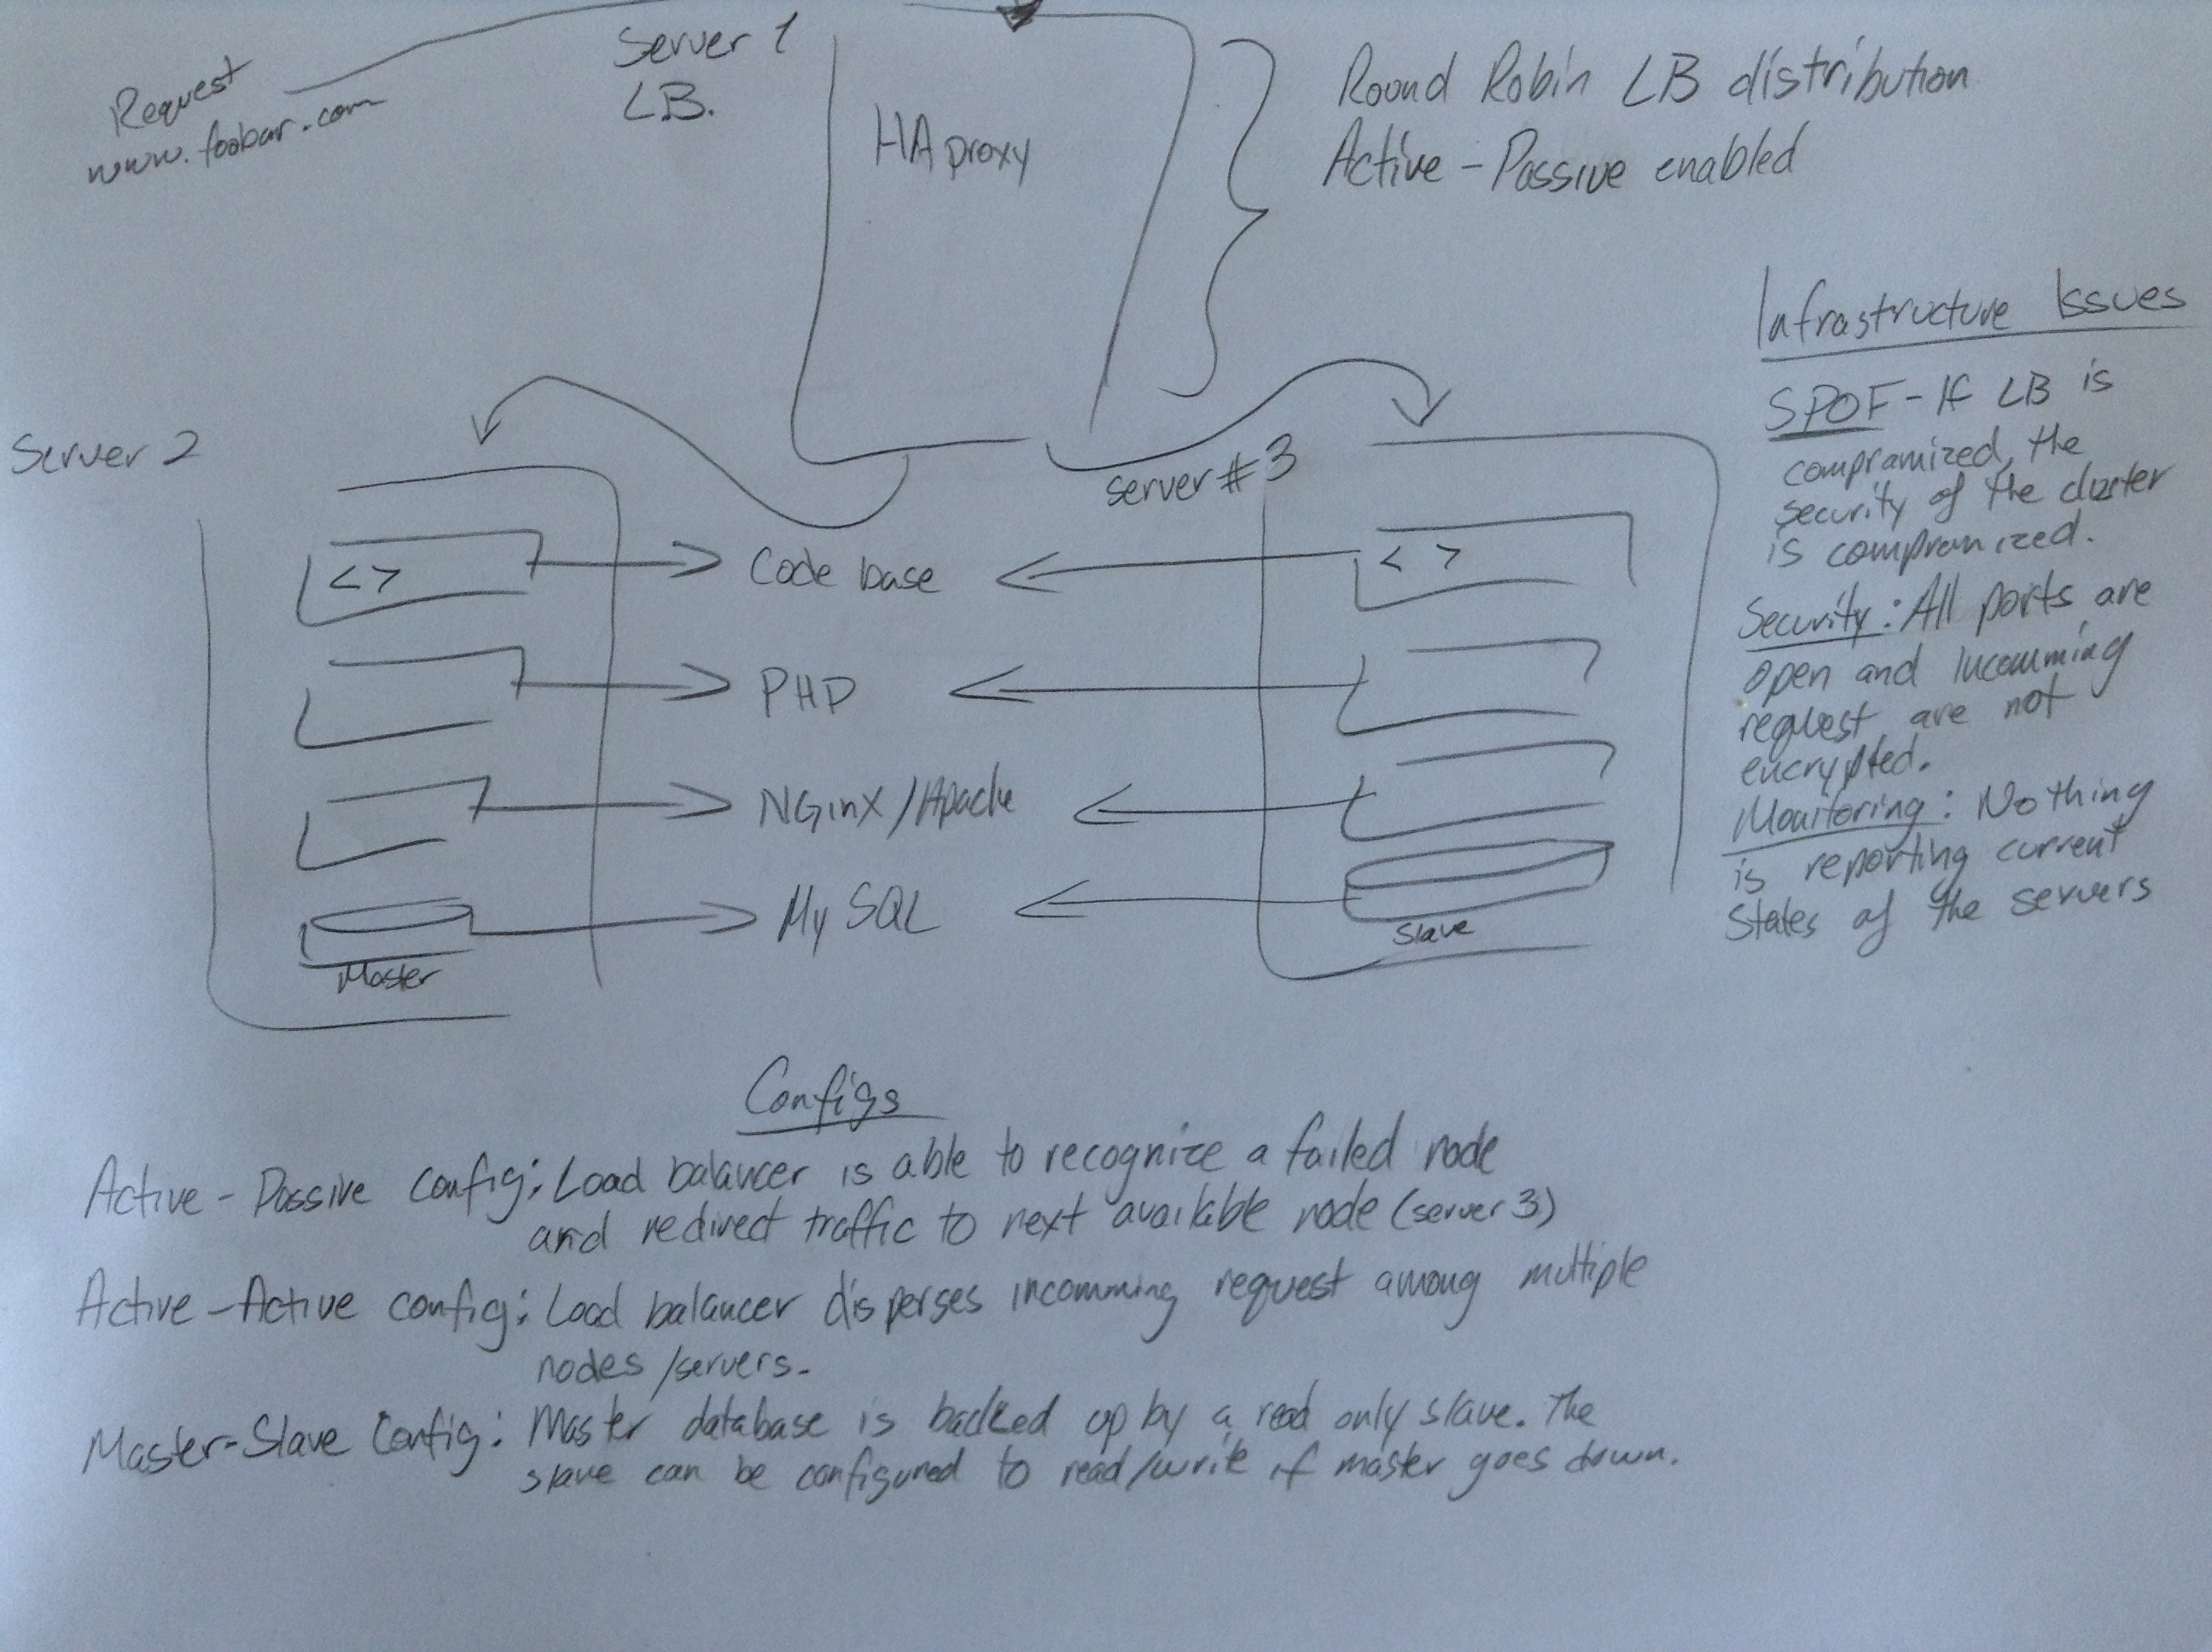 Request
www.foobar.com
Server 1
LB.
HAproxy
Round Robin LB distribution
Active-Passive enabled
Server 2
Server #3
< >
Code base
< >
PHP
NGinX/Apache
Master
My SQL
Slave
Infrastructure Issues
SPOF - If LB is
compramized, the
security of the cluster
is compromized.
Security: All ports are
open and incomming
request are not
encrypted.
Monitering: No thing
is reporting current
States of the servers
Configs
Active-Passive Config: Load balancer is able to recognize a failed node
and redirect traffic to next available node (server 3)
Active-Active config: Load balancer disperges incomming request among multiple
nodes/servers.
Master-Slave Config: Master database is backed up by a read only slave. The
slave can be configured to read/write if master goes down.